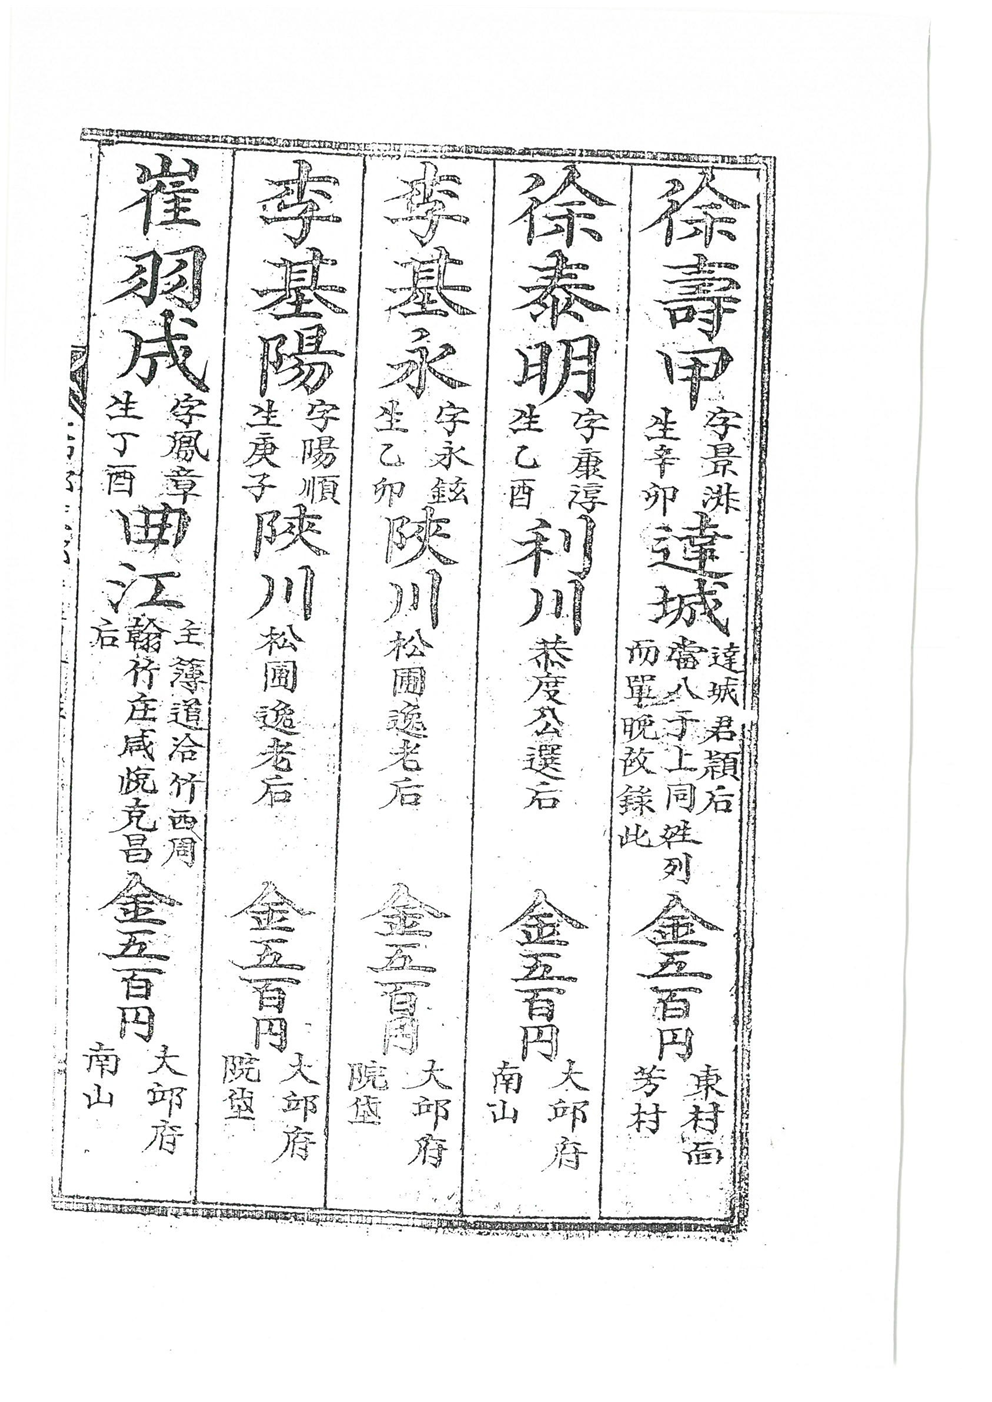 徐壽甲 字景洙 生辛卯 達城 達城君穎后 當入于上同姓列 而單晚故錄此 金五百円 東村面 芳村
徐泰明 字康淳 生乙酉 利川 恭度公選后 金五百円 大邱府 南山
李基永 字永鉉 生乙卯 陜川 松圃逸老后 金五百円 大邱府 院垈
李基陽 字陽順 生庚子 陜川 松圃逸老后 金五百円 大邱府 院垈
崔羽成 字鳳章 生丁酉 曲江 主簿道洽竹西周 翰竹庄咸悅克昌 后 金五百円 大邱府 南山